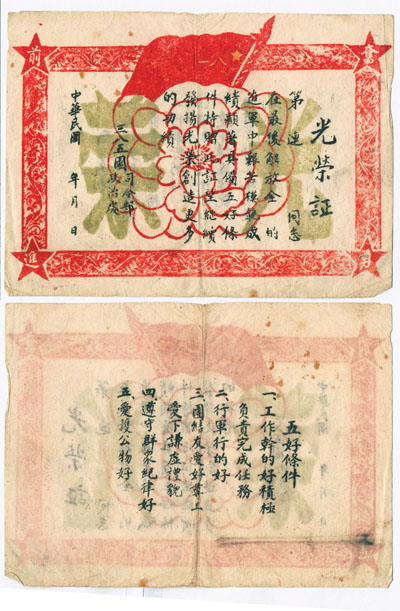 奮
前
進
八一
光榮
光榮証
第 連 同志
在最後解放全 的
進軍中艱苦 成
績顯著具備五好條
件特贈此証並繼續
發揚光榮創造更多
的功績
三一五團 司令部
政治處
中華民國 年 月 日
五好條件
一、工作幹的好積極
負責完成任務
二、行軍行的好
三、團結友愛好尊上
愛下謙虛禮貌
四、遵守群眾紀律好
五、愛護公物好